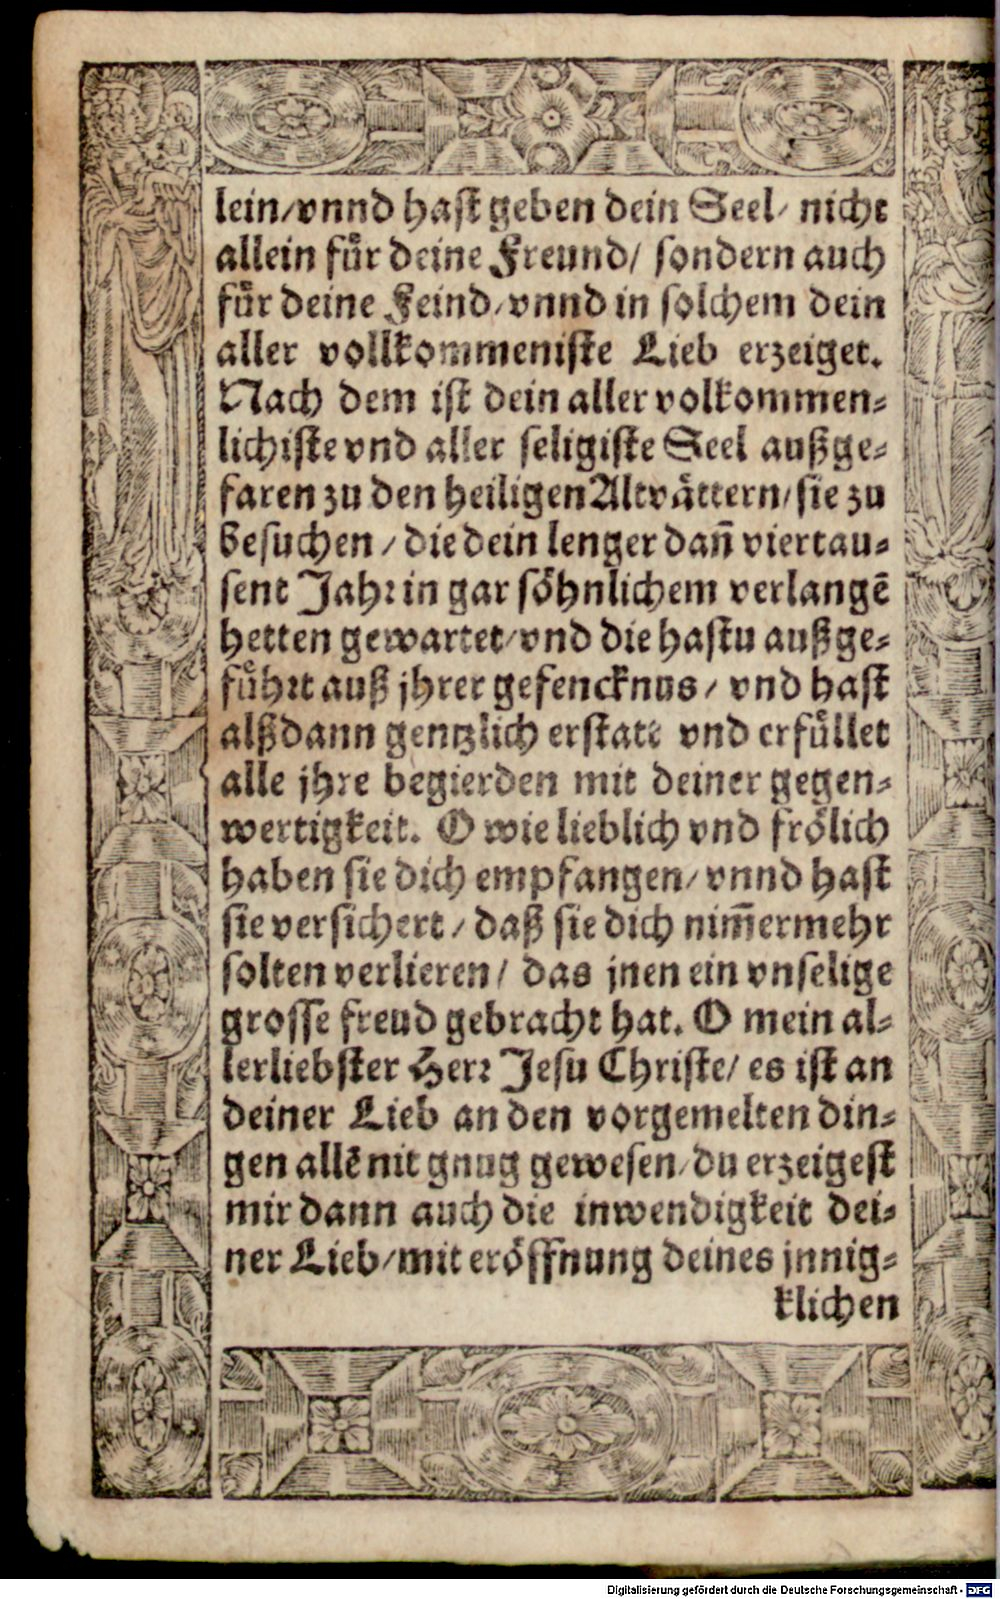 lein/vnnd hast geben dein Seel/ nicht
allein fuͤr deine Freund/ sondern auch
fuͤr deine Feind/vnnd in solchem dein
aller vollkommeniste Lieb erzeiget.
Nach dem ist dein aller volkommen-
lichiste vnd aller seligiste Seel außge-
faren zu den heiligen Altvaͤttern/sie zu
besuchen/die dein lenger dañ viertau-
sent Jahr in gar soͤhnlichem verlangē
hetten gewartet/vnd die hastu außge-
fuͤhrt auß jhrer gefencknus/ vnd hast
alßdann gentzlich erstatt vnd erfuͤllet
alle jhre begierden mit deiner gegen-
wertigkeit. O wie lieblich vnd froͤlich
haben sie dich empfangen/vnnd hast
sie versichert/daß sie dich nim̃ermehr
solten verlieren/ das jnen ein vnselige
grosse freud gebracht hat. O mein al-
lerliebster Herr Jesu Christe/es ist an
deiner Lieb an den vorgemelten din-
gen allē nit gnug gewesen/du erzeigest
mir dann auch die inwendigkeit dei-
ner Lieb/mit eroͤffnung deines jnnig-
klichen
Digitalisierung gefördert durch die Deutsche Forschungsgemeinschaft - DFG